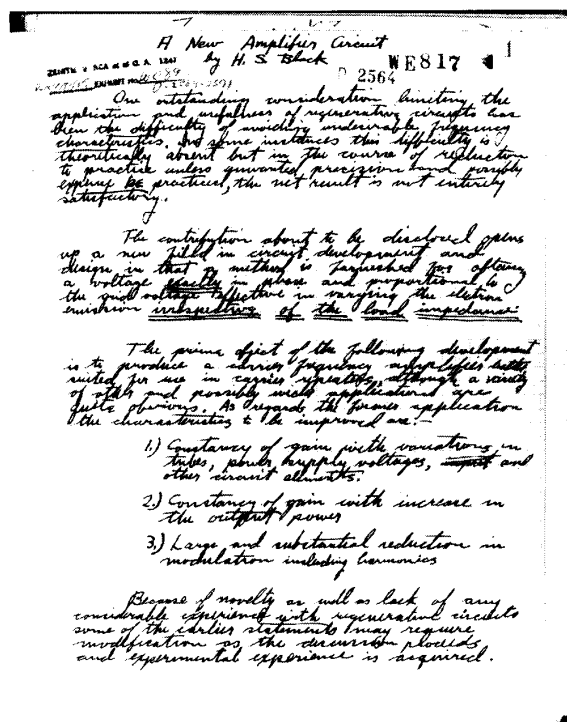 A New Amplifier Circuit
by H. S. Black
ZENITH v RCA et al C. A. 1247
EXHIBIT No.
D 2564
WE817
1
One outstanding consideration limiting the
application and usefulness of regenerative circuits has
been the difficulty of avoiding undesirable frequency
characteristics. In some instances this difficulty is
theoretically absent but in the course of reduction
to practice unless unwanted precision and possibly
expense be practiced, the net result is not entirely
satisfactory.
The contribution about to be disclosed opens
up a new field in circuit development and
design in that a method is furnished for obtaining
a voltage exactly in phase and proportional to
the grid voltage effective in varying the electron
emission irrespective of the load impedance.
The prime object of the following development
is to produce a carrier frequency amplifier better
suited for use in carrier repeaters, although a variety
of other and possibly wider applications are
quite obvious. As regards the former application
the characteristics to be improved are:—
1.) Constancy of gain with variations in
tubes, power supply voltages, and
other circuit elements.
2.) Constancy of gain with increase in
the output power
3.) Large and substantial reduction in
modulation including harmonics
Because of novelty as well as lack of any
considerable experience with regenerative circuits
some of the earlier statements may require
modification as the discussion proceeds
and experimental experience is acquired.